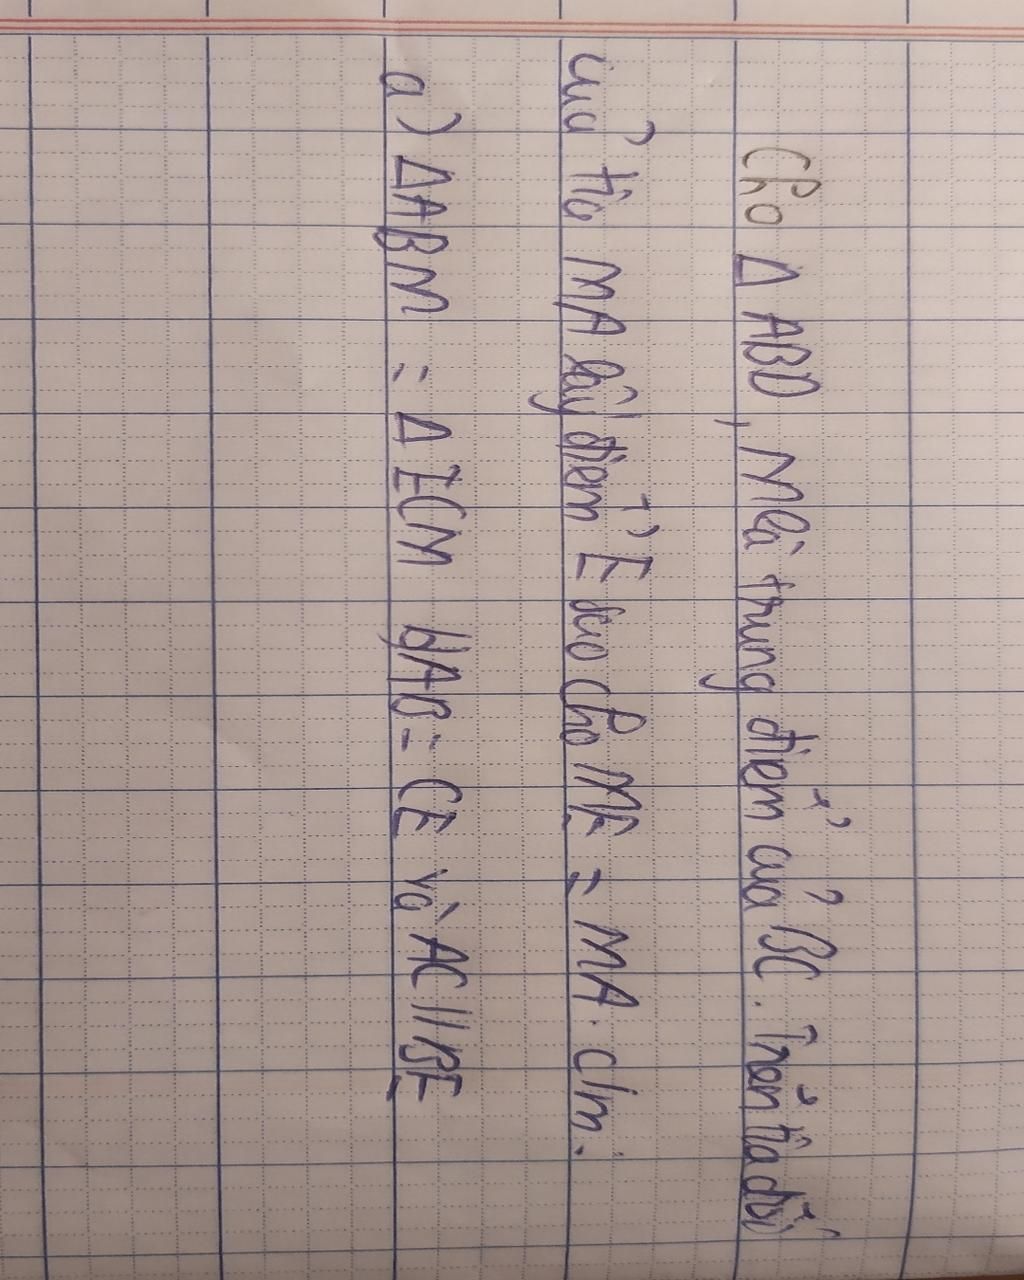 Cho Δ ABD, M là trung điểm của BC. Trên tia đối
của tia MA lấy điểm E sao cho ME = MA. c/m:
a) ΔABM = Δ ECM b) AB = CE và AC // BE